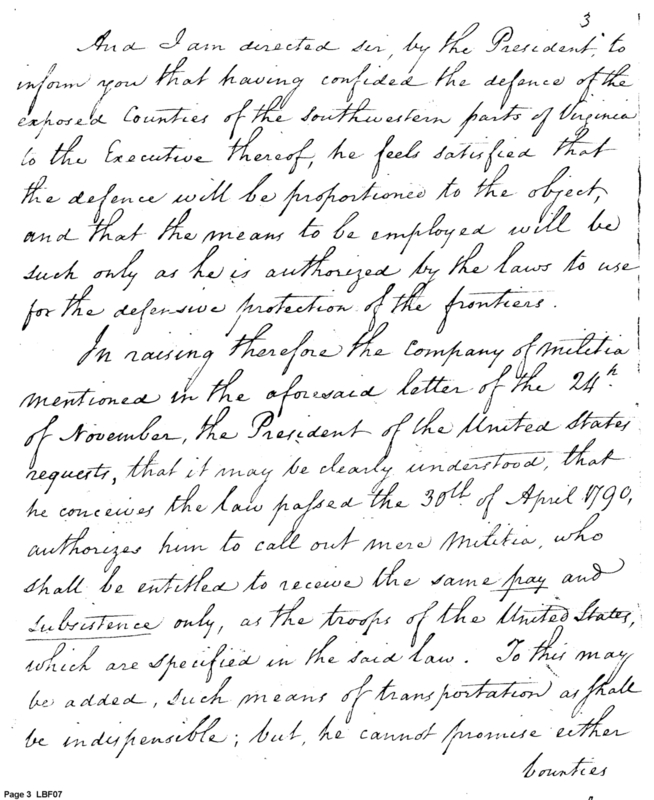 3
And I am directed sir, by the President, to
inform you that having confided the defence of the
exposed Counties of the southwestern parts of Virginia
to the Executive thereof, he feels satisfied that
the defence will be proportioned to the object,
and that the means to be employed will be
such only as he is authorized by the laws to use
for the defensive protection of the frontiers.
In raising therefore the company of militia
mentioned in the aforesaid letter of the 24th.
of November, the President of the United States
requests, that it may be clearly understood, that
he conceives the law passed the 30th of April 1790,
authorizes him to call out mere Militia, who
shall be entitled to receive the same pay and
subsistence only, as the troops of the United States,
which are specified in the said law. To this may
be added, such means of transportation as shall
be indispensible; but, he cannot promise either
bounties
Page 3 LBF07